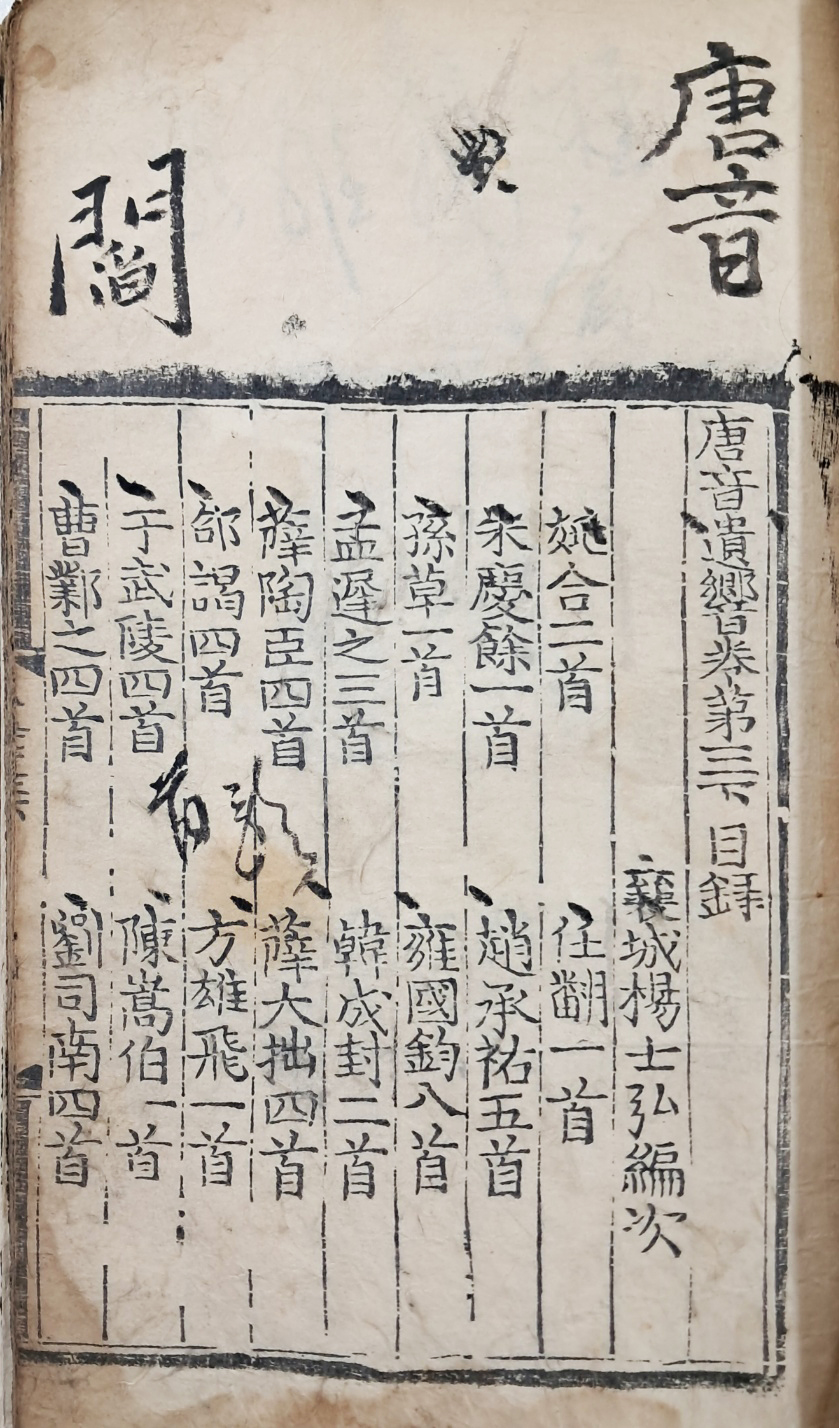 唐音
閻
唐音遺響卷第三下目錄
襄城楊士弘編次
姚合二首 任翻一首
朱慶餘一首 趙承祐五首
孫草一首 雍國鈞八首
孟遲之三首 韓成封二首
薛陶臣四首 薛大拙四首
邵謁四首 方雄飛一首
于武陵四首 陳嵩伯一首
曹鄴之四首 劉司南四首